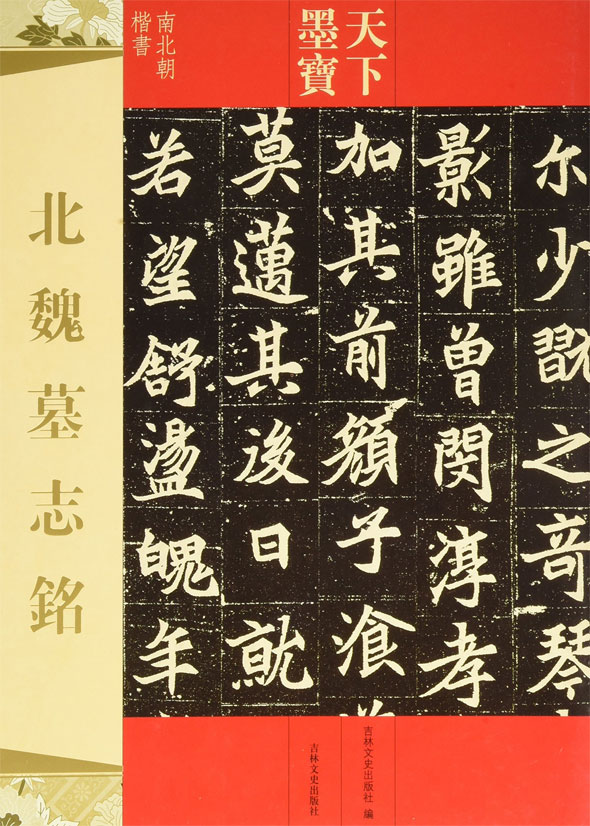 天下
墨寶
南北朝
楷書
北魏墓志銘
尔少翫之音琴
影雖曾閔淳孝
加其前顏子飡
莫邁其後日就
若望舒盪魄年
吉林文史出版社 编
吉林文史出版社